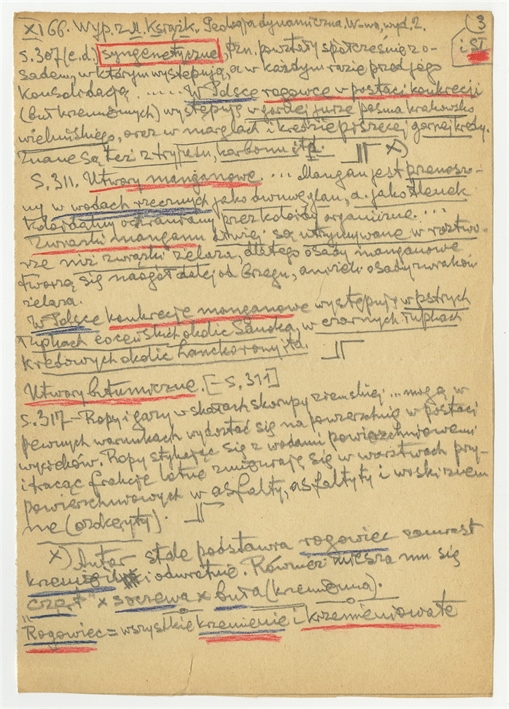 XI 66. Wyp. z M. Książk. Geologja dynamiczna, W-wa, wyd. 2.
3
i ST
s. 307 (c.d.) syngenetyczne, tzn. powstały spółcześnie z o-
sadem, w którym występują, a w każdym razie przed jego
konsolidacją ..... W Polsce rogowce w postaci konkrecji
(buł krzemiennych) występują w górnej jurze pasma krakowsko
wieluńskiego, oraz w marglach i kredzie piszącej górnej kredy.
Znane są też z tryasu, karbonu itp. x)
S. 311. Utwory manganowe. .... Mangan jest przenoszo-
ny w wodach rzecznych jako dwuwęglan, a jako tlenek
koloidalny ochraniany przez koloidy organiczne. ....
Związki manganu łatwiej są utrzymywane w roztwo-
rze niż związki żelaza, dlatego osady manganowe
tworzą się naogół dalej od brzegu, aniżeli osady związków
żelaza.
W Polsce konkrecje manganowe występują w pstrych
łupkach eoceńskich okolic Sanoka, w czarnych łupkach
kredowych okolic Lanckorony itd.
Utwory bitumiczne. [- S. 311]
S. 317 - Ropy i gazy w skałach skorupy ziemskiej ... mogą w
pewnych warunkach wydostać się na powierzchnię w postaci
wycieków. Ropy stykając się z wodami powierzchniowemi
i tracąc frakcje lotne zmieniają się w warstwach przy-
powierzchniowych w asfalty, asfaltyty i woski ziem
ne (ozokeryty).
x) Autor stale podstawia rogowiec zamiast
krzemień i odwrotnie. Również miesza mu się
"czert" x soczewa x buła (krzemienna).
"Rogowiec = wszystkie krzemienie i krzemieniowate